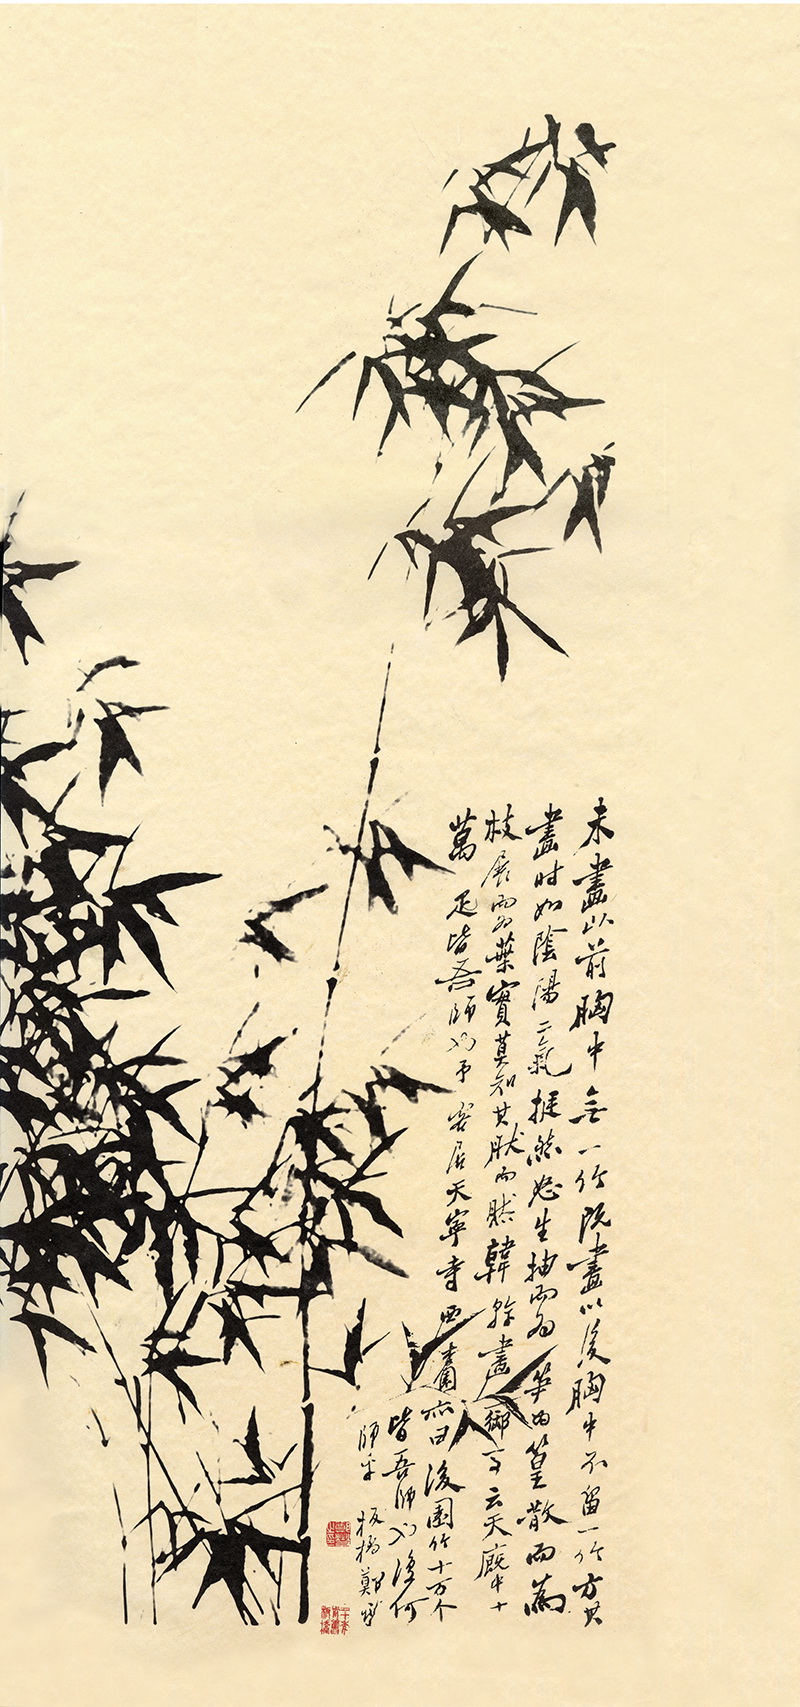 未畫以前胸中無一竹既畫以後胸中不留一竹方其
畫時如陰陽二氣挺然怒生抽而為筍為篁散而為
枝展而為葉實莫知其然而然韓幹畫御馬云天廐中十
萬匹皆吾師也予客居天寧寺西杏園亦曰後園竹十万个
皆吾師也復何
師乎 板橋鄭燮